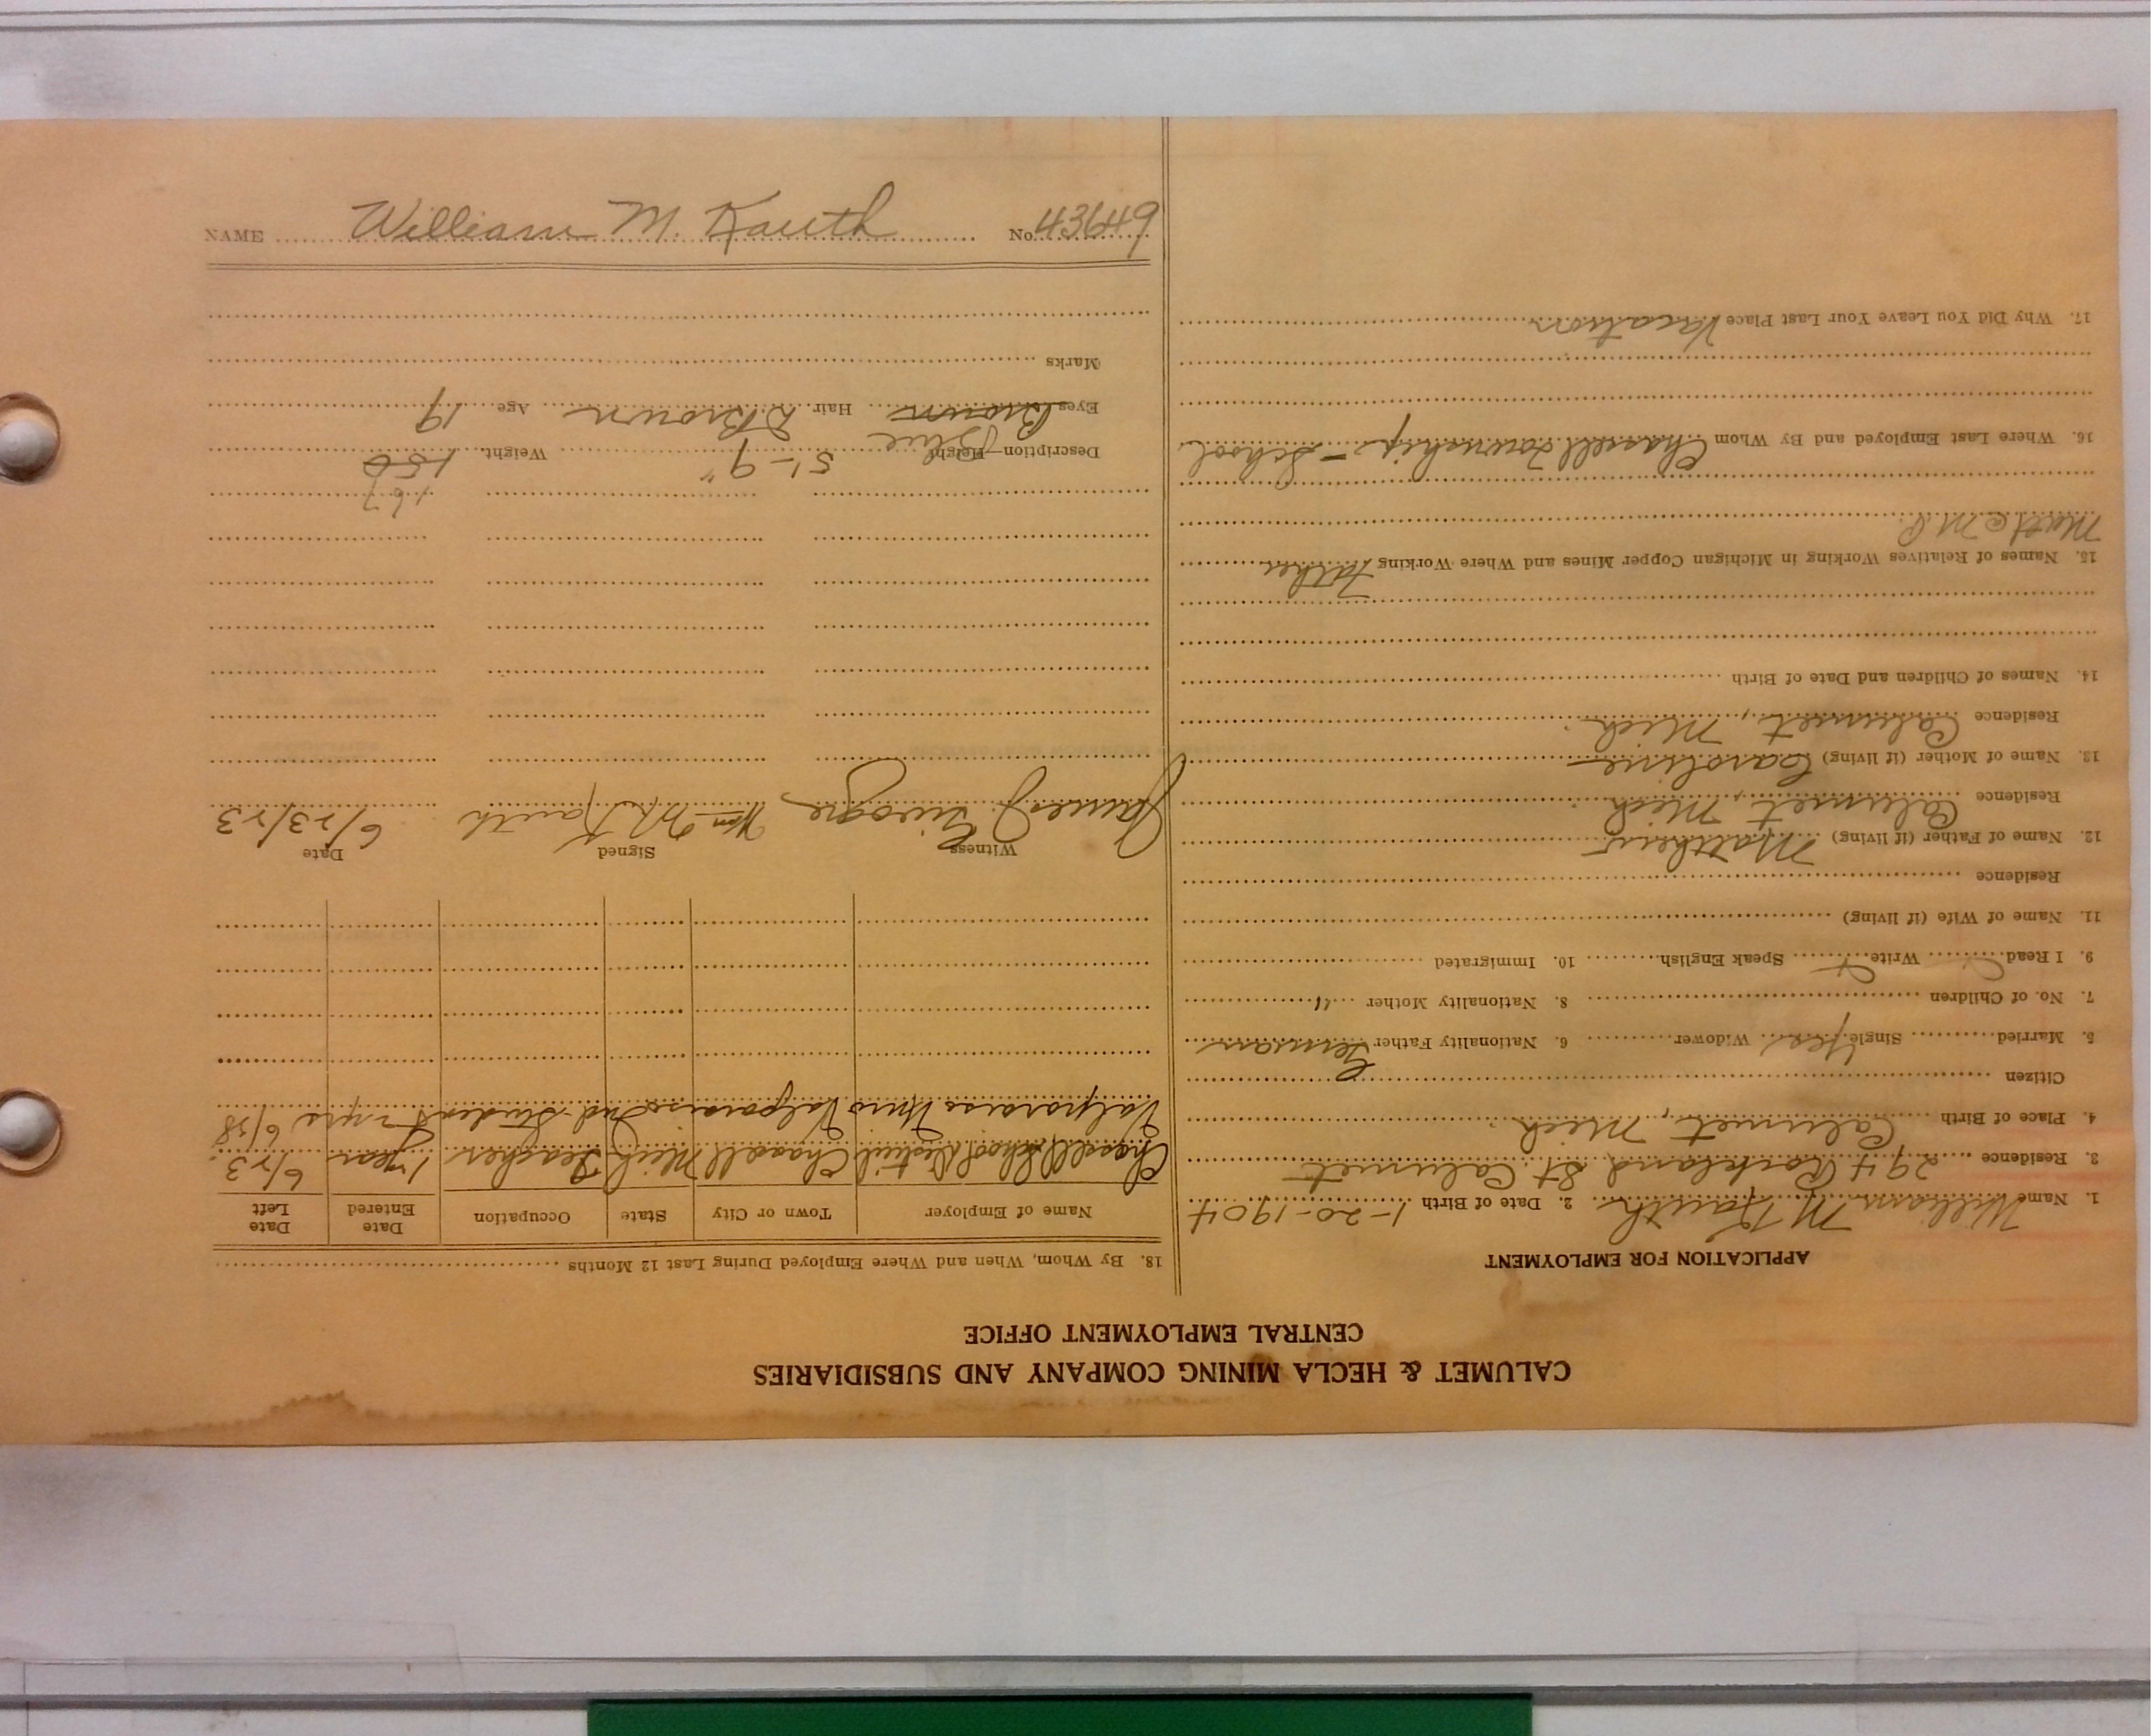 CALUMET & HECLA MINING COMPANY AND SUBSIDIARIES
CENTRAL EMPLOYMENT OFFICE
APPLICATION FOR EMPLOYMENT
1. Name William M Kauth 2. Date of Birth 1-20-1904
3. Residence 294 Rockland St. Calumet
4. Place of Birth Calumet, Mich.
Citizen
5. Married Single Yes Widower 6. Nationality Father German
7. No. of Children 8. Nationality Mother "
9. I Read Write Speak English 10. Immigrated
11. Name of Wife (if living)
Residence
12. Name of Father (if living) Matthew
Residence Calumet, Mich.
13. Name of Mother (if living) Caroline
Residence Calumet, Mich.
14. Names of Children and Date of Birth
15. Names of Relatives Working in Michigan Copper Mines and Where Working Father
16. Where Last Employed and By Whom Chasell Township - School
17. Why Did You Leave Your Last Place Vacation
18. By Whom, When and Where Employed During Last 12 Months
Name of Employer Town or City State Occupation Date Entered Date Left
Chasell School District Chasell Mich Teacher 1 year 6/23
Valparaiso Univ Valparaiso Ind. Student yrs 6/28
Witness Signed Date
James J. Wm M Kauth 6/23/23
167
Description—Height 5'-9" Weight 150
Blue
Eyes Brown Hair D. Brown Age 19
Marks
NAME William M. Kauth No. 43649